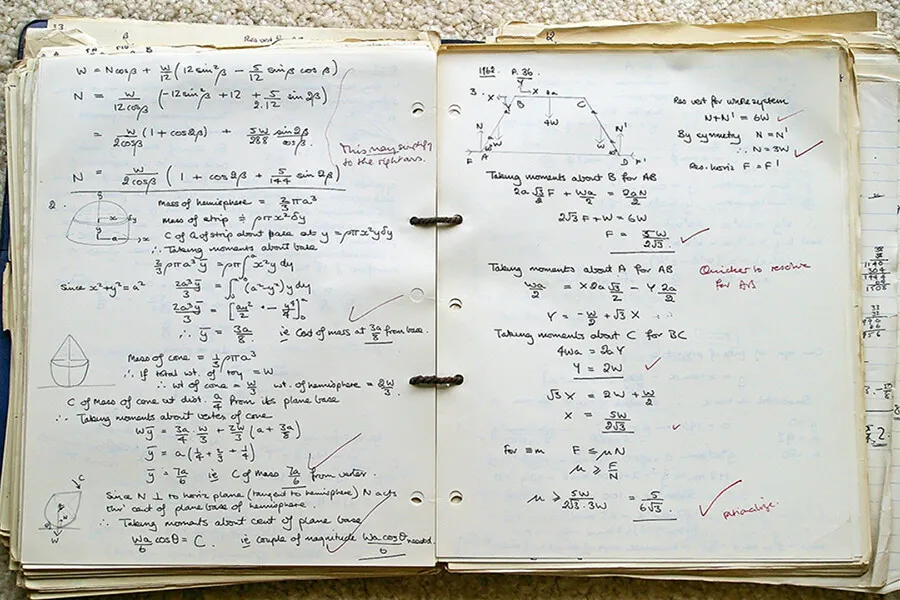 W = Ncosβ + W/12 (12sin²β − 5/12 sinβ cosβ)
N = W/12cosβ (−12sin²β + 12 + 5/2.12 sin2β)
= W/2cosβ (1 + cos2β) + 5W/288 sin2β/cosβ
This may simplify
to the right ans.
N = W/2cosβ (1 + cos2β + 5/144 sin2β)
2.
Mass of hemisphere = 2/3 πρa³
Mass of strip ≑ ρπx²δy
C of G of strip about base at y = ρπx²yδy
∴ Taking moments about base
2/3 ρπa³ȳ = ρπ∫x²y dy
Since x²+y²=a² 2a³ȳ/3 = ∫(a²−y²)y dy
2a³ȳ/3 = [a²y²/2 − y⁴/4]
∴ ȳ = 3a/8 ie Cent of mass at 3a/8 from base.
Mass of cone = 1/3 ρπa³
∴ If total wt. of toy = W
∴ wt of cone = W/3 wt. of hemisphere = 2W/3
C of Mass of cone at dist. a/4 from its plane base
∴ Taking moments about vertex of cone
Wȳ = 3a/4 . W/3 + 2W/3 (a + 3a/8)
ȳ = a(1/4 + 2/3 + 1/4)
ȳ = 7a/6 ie C of mass 7a/6 from vertex.
Since N ⊥ to horiz plane (tangent to hemisphere) N acts
thro' cent of plane base of hemisphere.
∴ Taking moments about cent of plane base
Wa/6 cosθ = C. ie couple of magnitude Wa cosθ/6 needed
1962 P. 36
3.
Y
X
B
C
4W
W
W
N
N'
F
A
D
F'
Res vert for whole system
N+N' = 6W
By symmetry N = N'
∴ N = 3W
Res. horiz F = F'
Taking moments about B for AB
2a√3/2 F + Wa/2 = 2aN/2
2√3 F + W = 6W
F = 5W/2√3
Taking moments about A for AB
Quicker to resolve
for AB
Wa/2 = X2a√3/2 − Y 2a/2
Y = −W/2 + √3 X
Taking moments about C for BC
4Wa = 2aY
Y = 2W
√3X = 2W + W/2
X = 5W/2√3
For ≡m F ≤ μN
μ ≥ F/N
μ ≥ 5W/2√3.3W = 5/6√3
rationalise.